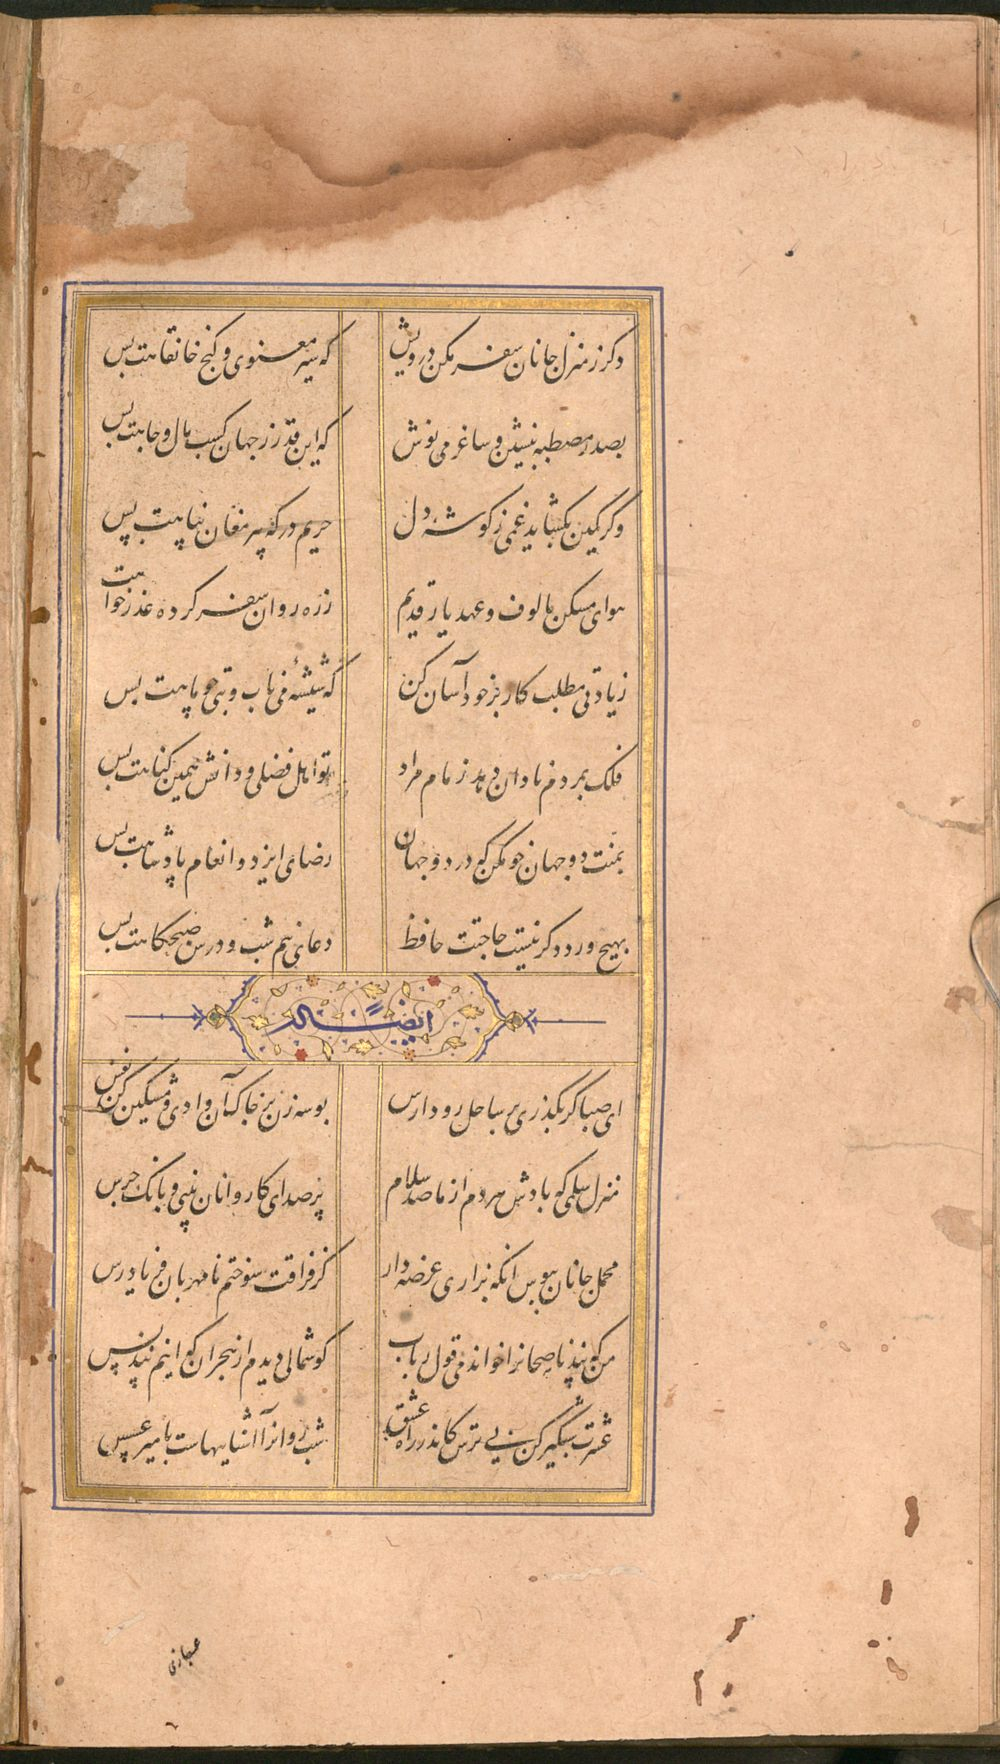 دکر ز منزل جانان سفر مکن درویش که سیر معنوی و کنج خانقاهت بس
بصدر مصطبه بنشین و ساغر می نوش که این قدر ز جهان کسب مال و جاهت بس
وگر کمین بکشاید غمی ز کوشه دل حریم درکه پیر مغان پناهت بس
هوای مسکن مالوف و عهد یار قدیم ز ره روان سفر کرده عذر خواهت
زیادتی مطلب کار بر خود آسان کن که شیشهٔ می ناب و بتی چو ماهت بس
فلک بمردم نادان دهد زمام مراد تو اهل فضلی و دانش همین کناهت بس
بمنت دو جهان خو مکن که در دو جهان رضای ایزد و انعام پادشاهت بس
بهیچ ورد دکر نیست حاجتت حافظ دعای نیم شب و درس صبحکاهت بس
ایضاً له
ای صبا کر بکذری بر ساحل رود ارس بوسه زن بر خاک آن وادی و مشکین کن نفس
منزل سلمی که بادش هر دم از ما صد سلام پر صدای کاروانان بینی و بانک جرس
محمل جانان ببوس آنکه بزاری عرضه دار کز فراقت سوختم نامهربان فریاد رس
من که پند ناصحانرا خواندمی قول رباب کوشمالی دیدم از هجران که اینم پند بس
عشرت شبکیر کن بی ترس کاندر راه عشق شب روانرا آشناییهاست با میر عسس